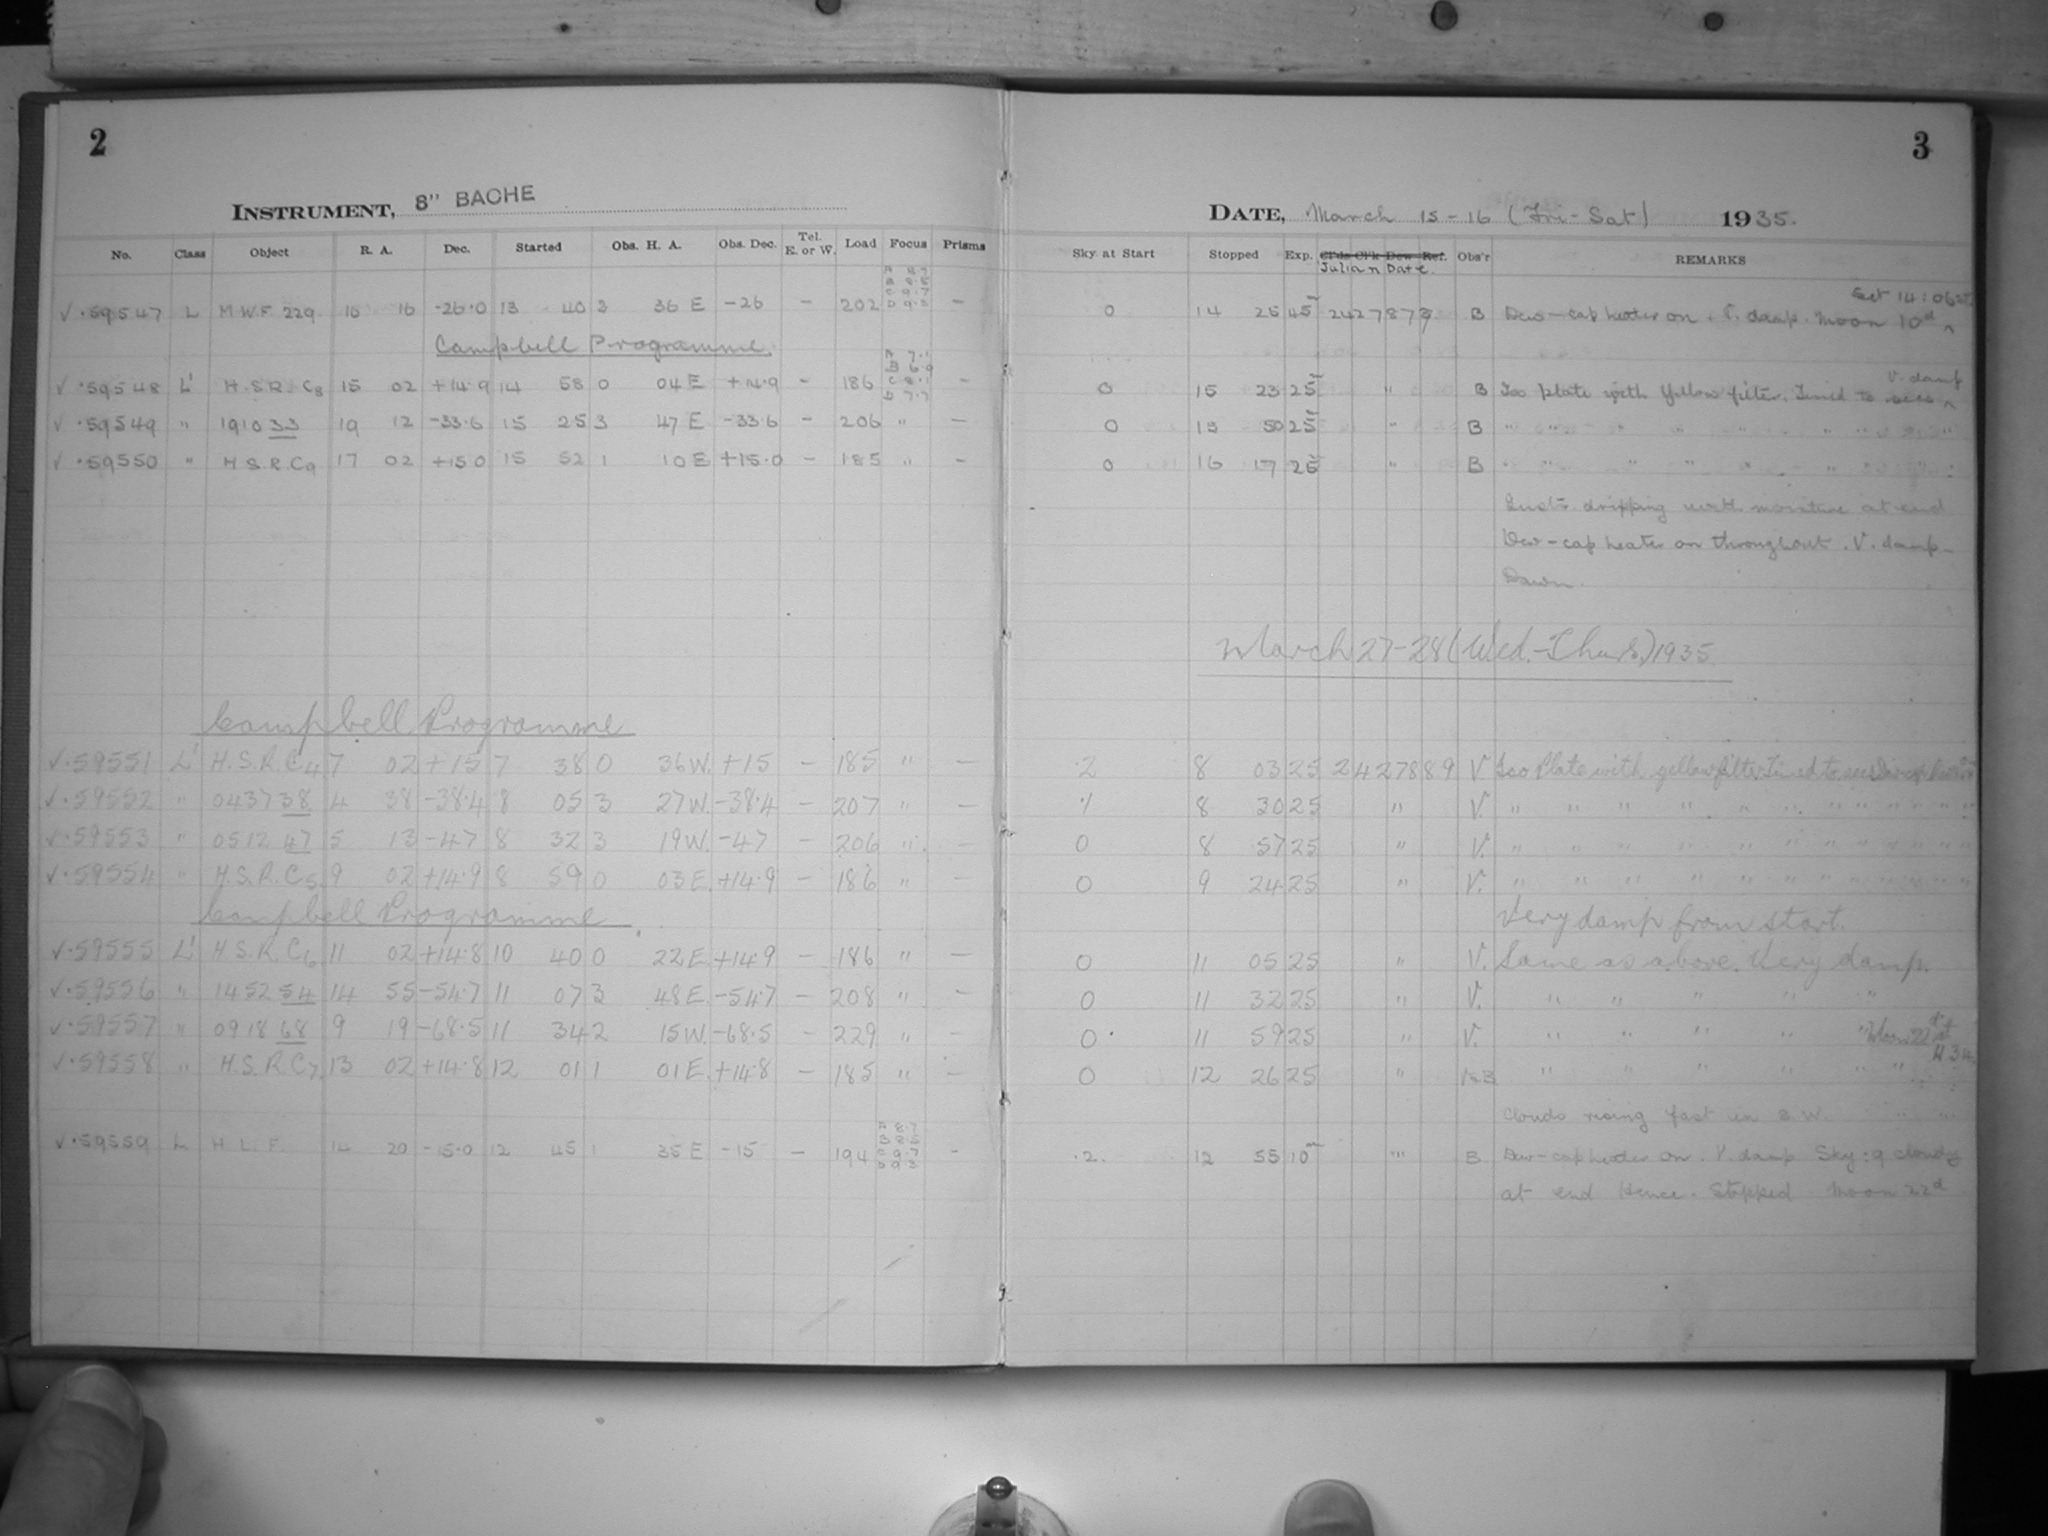 2
INSTRUMENT, 8" BACHE
No. Class Object R. A. Dec. Started Obs. H. A. Obs. Dec. Tel. E. or W. Load Focus Prisms
√ ·59547 L M.W.F. 229 16 16 -26·0 13 40 3 36 E -26 – 202 A 8.7 B 8.5 C 9.7 D 9.2 –
Campbell Programme.
√ ·59548 L' H.S.R. C8 15 02 +14·9 14 58 0 04 E +14·9 – 186 A 7.1 B 6.9 C 8.1 D 7.7 –
√ ·59549 " 191033 19 12 -33·6 15 25 3 47 E -33·6 – 206 " –
√ ·59550 " H.S.R. C9 17 02 +15·0 15 52 1 10 E +15·0 – 185 " –
Campbell Programme
√·59551 L' H.S.R. C4 7 02 +15 7 38 0 36 W. +15 – 185 " –
√·59552 " 043738 4 38 -38·4 8 05 3 27 W. -38·4 – 207 " –
√·59553 " 051247 5 13 -47 8 32 3 19 W. -47 – 206 " –
√·59554 " H.S.R. C5 9 02 +14·9 8 59 0 03 E. +14·9 – 186 " –
Campbell Programme
√·59555 L' H.S.R. C6 11 02 +14·8 10 40 0 22 E. +14·9 – 186 " –
√·59556 " 145254 14 55 -54·7 11 07 3 48 E. -54·7 – 208 " –
√·59557 " 091868 9 19 -68·5 11 34 2 15 W. -68·5 – 229 " –
√·59558 " H.S.R. C7 13 02 +14·8 12 01 1 01 E. +14·8 – 185 " –
√·59559 L H. L. F. 14 20 -15·0 12 45 1 35 E -15 – 194 A 8.7 B 8.5 C 9.7 D 9.2 –
3
DATE, March 15-16 (Fri-Sat) 1935.
Sky at Start Stopped Exp. Cl'ds Cl'k Dew Ref. Obs'r REMARKS
Julian Date.
Set 14:06
0 14 25 45m 2427879 B Dew-cap heater on. V. damp. Moon 10d
V. damp
0 15 23 25m " B Iso plate with yellow filter. Timed to secs
0 15 50 25m " B " " " " " " " "
0 16 17 25m " B " " " " " " " "
dripping with moisture at end
Dew-cap heater on throughout. V. damp-
Dawn.
March 27-28 (Wed.-Thurs.) 1935.
·2 8 03 25 2427889 V. Iso Plate with yellow filter. Timed to secs
·1 8 30 25 " V. " " " " " " " " " "
0 8 57 25 " V. " " " " " " " " " "
0 9 24 25 " V. " " " " " " " " " "
Very damp from start.
0 11 05 25 " V. Same as above. Very damp.
0 11 32 25 " V. " " " " "
0· 11 59 25 " V. " " " " " Moon 22d at
0 12 26 25 " V+B " " " " " "
Clouds rising fast in S.W.
·2. 12 55 10m " B Dew-cap heater on. V. damp Sky: 9 cloudy
at end Hence. Stopped Moon 22d